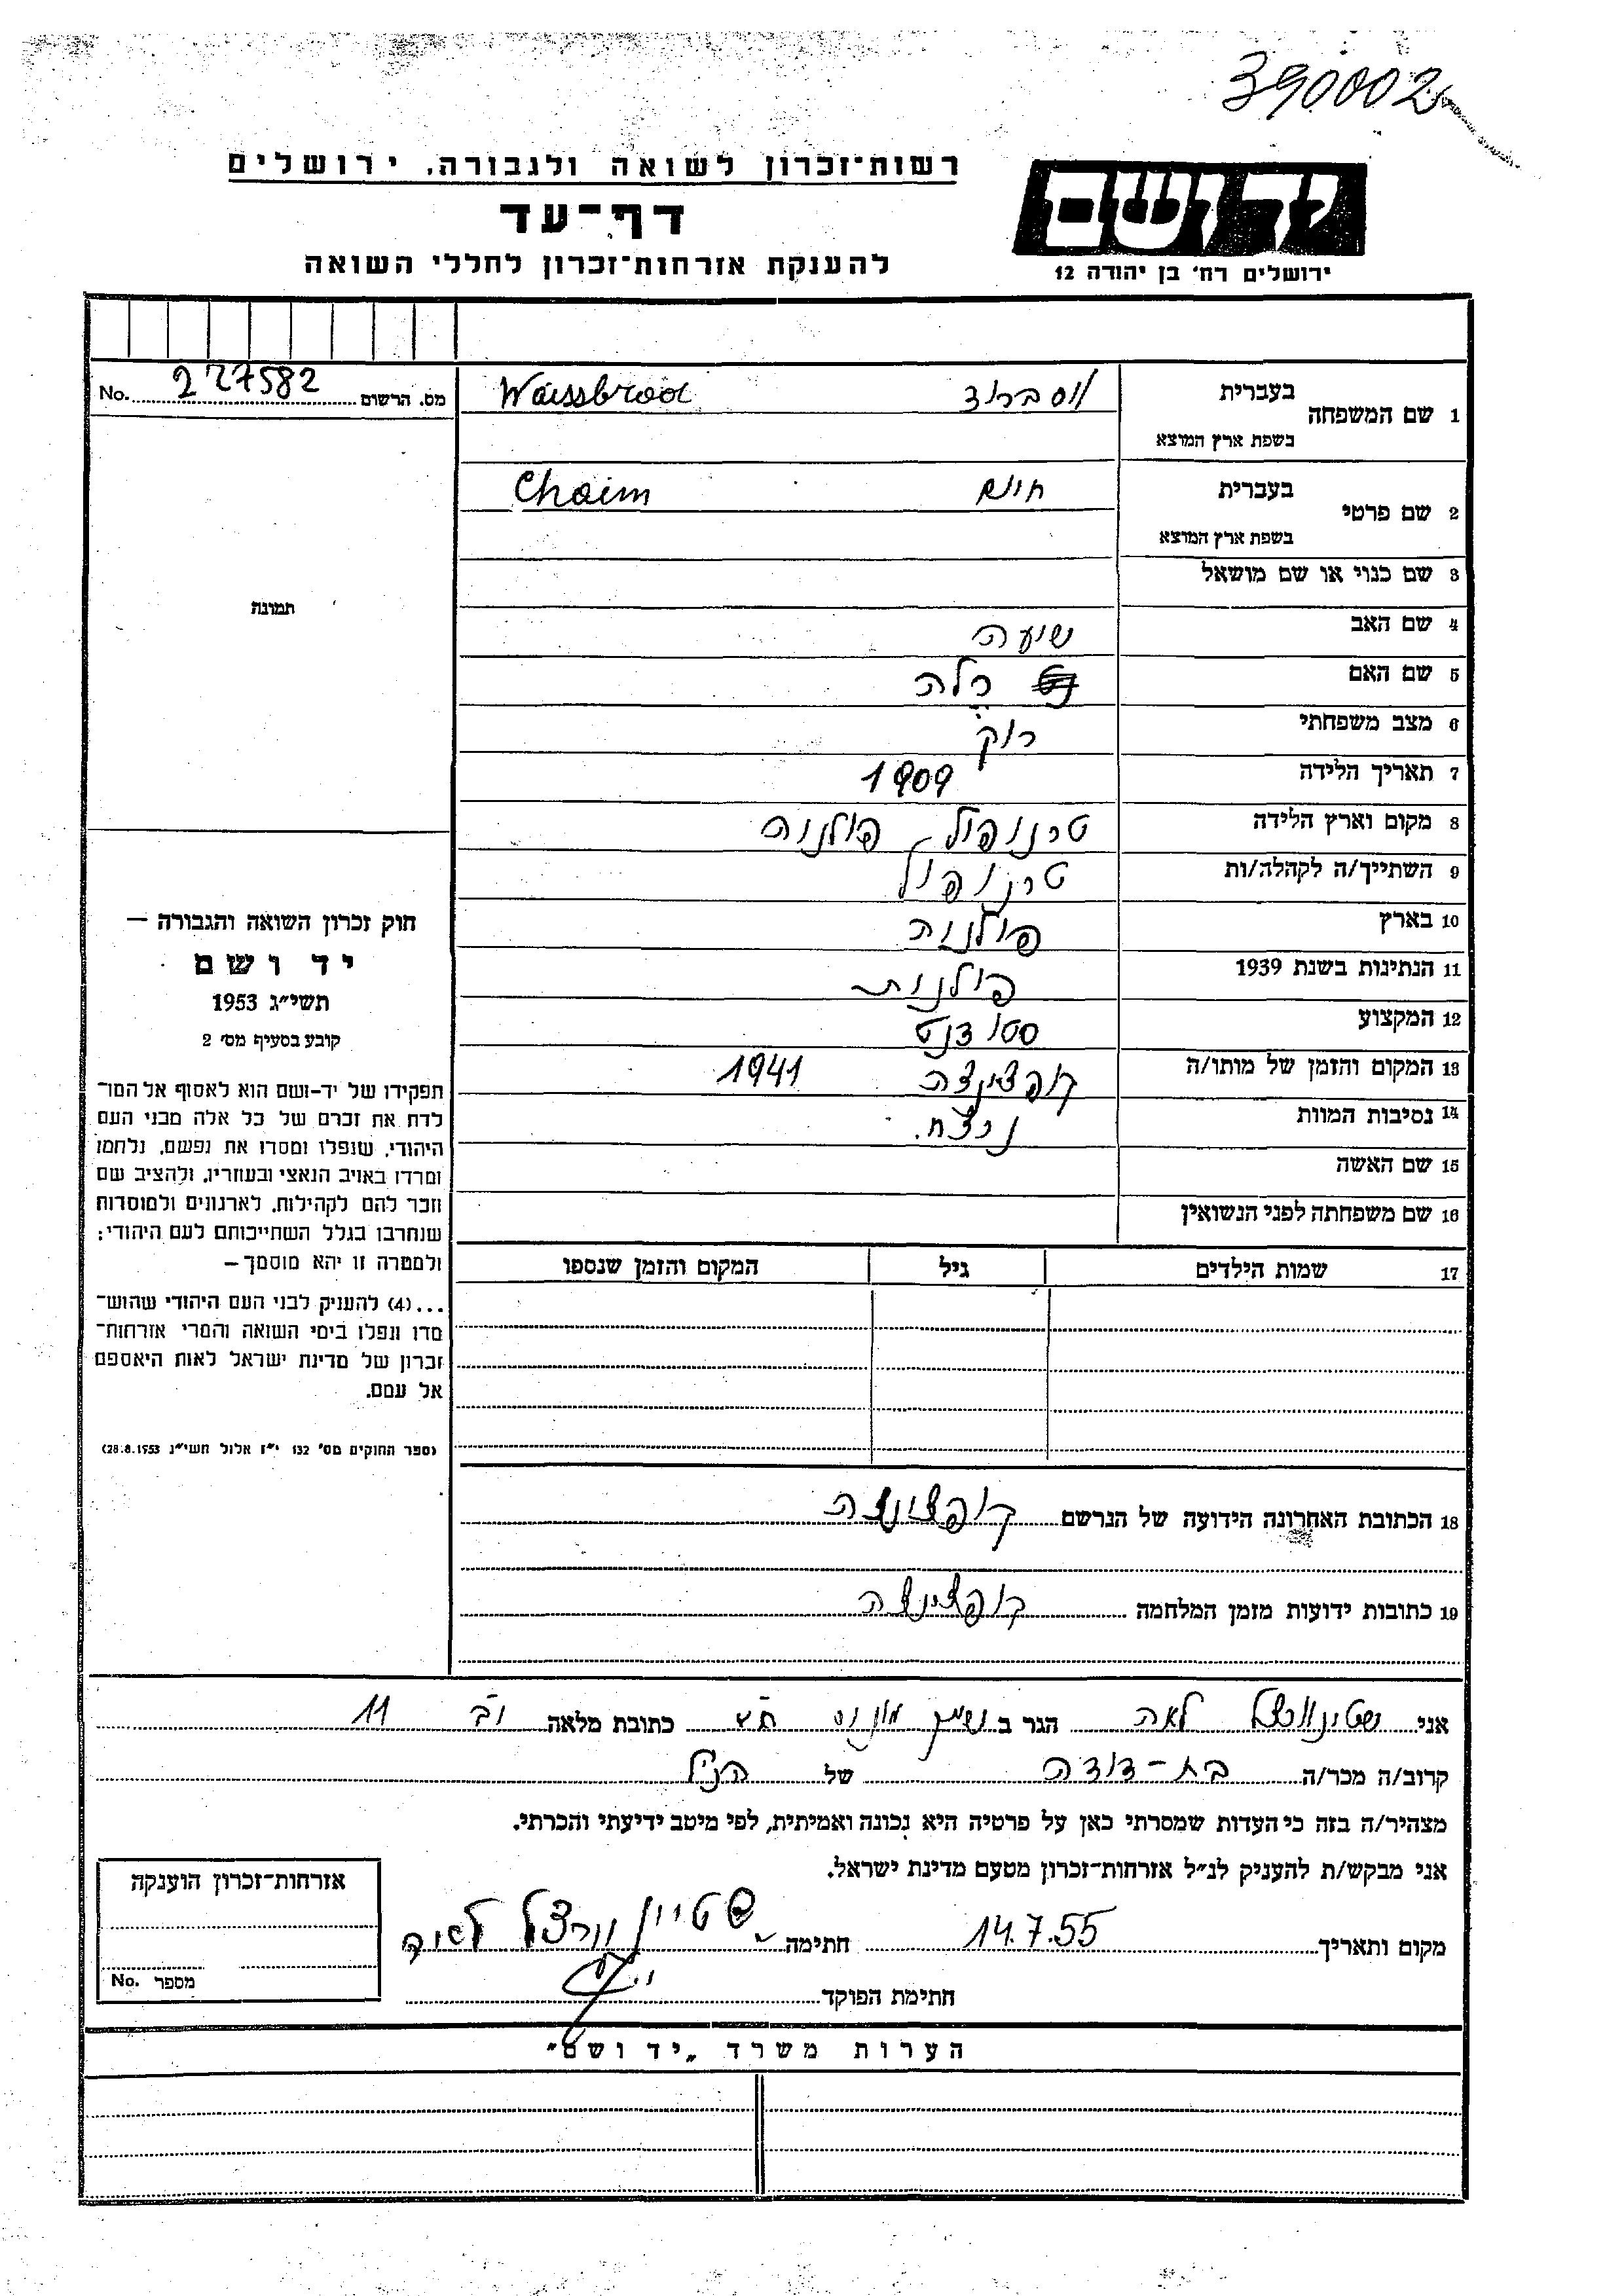 390002
רשות־זכרון לשואה ולגבורה, ירושלים
דף־עד
להענקת אזרחות־זכרון לחללי השואה
יד ושם
ירושלים רח׳ בן יהודה 12
מס. הרשום 227582 No.
1 שם המשפחה בעברית וסברוד Waissbrod
בשפת ארץ המוצא
2 שם פרטי בעברית חיים Chaim
בשפת ארץ המוצא
3 שם כנוי או שם מושאל
תמונה
4 שם האב שיעה
5 שם האם
6 מצב משפחתי רוק
7 תאריך הלידה 1909
8 מקום וארץ הלידה טרנופול, פולניה
9 השתייך/ה לקהלה/ות טרנופול
10 בארץ פולניה
11 הנתינות בשנת 1939 פולנית
12 המקצוע סטודנט
13 המקום והזמן של מותו/ה קופצינצה 1941
14 נסיבות המוות נרצח.
15 שם האשה
16 שם משפחתה לפני הנשואין
17 שמות הילדים גיל המקום והזמן שנספו
חוק זכרון השואה והגבורה —
יד ושם
תשי״ג 1953
קובע בסעיף מס׳ 2
תפקידו של יד-ושם הוא לאסוף אל המו־
לדת את זכרם של כל אלה מבני העם
היהודי, שנפלו ומסרו את נפשם, נלחמו
ומרדו באויב הנאצי ובעוזריו, ולהציב שם
וזכר להם לקהילות, לארגונים ולמוסדות
שנחרבו בגלל השתייכותם לעם היהודי;
ולמטרה זו יהא מוסמך —
...(4) להעניק לבני העם היהודי שהוש־
מדו ונפלו בימי השואה והמרי אזרחות־
זכרון של מדינת ישראל לאות היאספם
אל עמם.
(ספר החוקים מס׳ 132 י״ז אלול תשי״ג 28.8.1953)
18 הכתובת האחרונה הידועה של הנרשם קופצינצה
19 כתובות ידועות מזמן המלחמה קופצינצה
אני לאה הגר ב כתובת מלאה 11
קרוב/ה מכר/ה בת-דודה של הנ״ל
מצהיר/ה בזה כי העדות שמסרתי כאן על פרטיה היא נכונה ואמיתית, לפי מיטב ידיעתי והכרתי.
אני מבקש/ת להעניק לנ״ל אזרחות־זכרון מטעם מדינת ישראל.
מקום ותאריך 14.7.55 חתימה
חתימת הפוקד
אזרחות־זכרון הוענקה
מספר No.
הערות משרד „יד ושם"